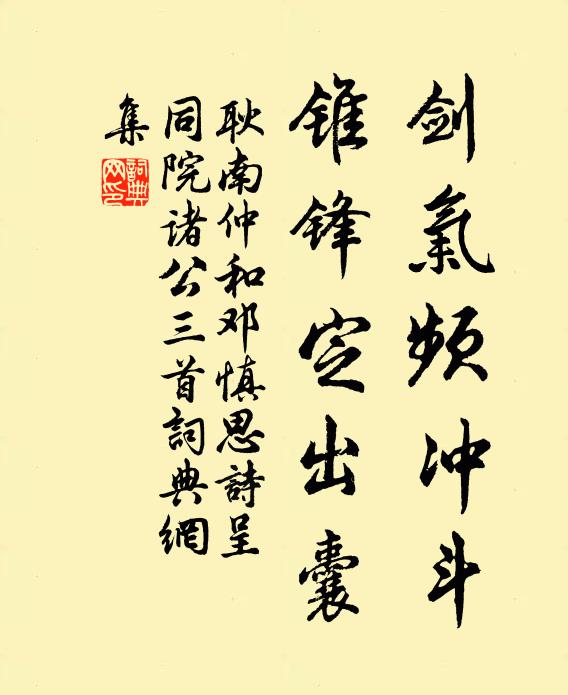 剑氣频冲斗
锥锋定出囊
耿南仲和邓慎思詩呈
同院诸公三首詞典網
集
詞典網印